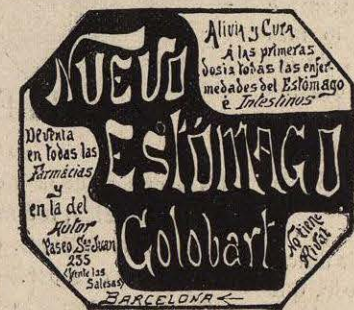 NUEVO
ESTÓMAGO
Golobart
Alivia y Cura
á las primeras
dosis todas las enfer-
medades del Estómago
é Intestinos
De venta
en todas las
Farmácias
y
en la del
Autor
Paseo Sn Juan
235
(frente las
Salesas)
BARCELONA
No tiene
Rival